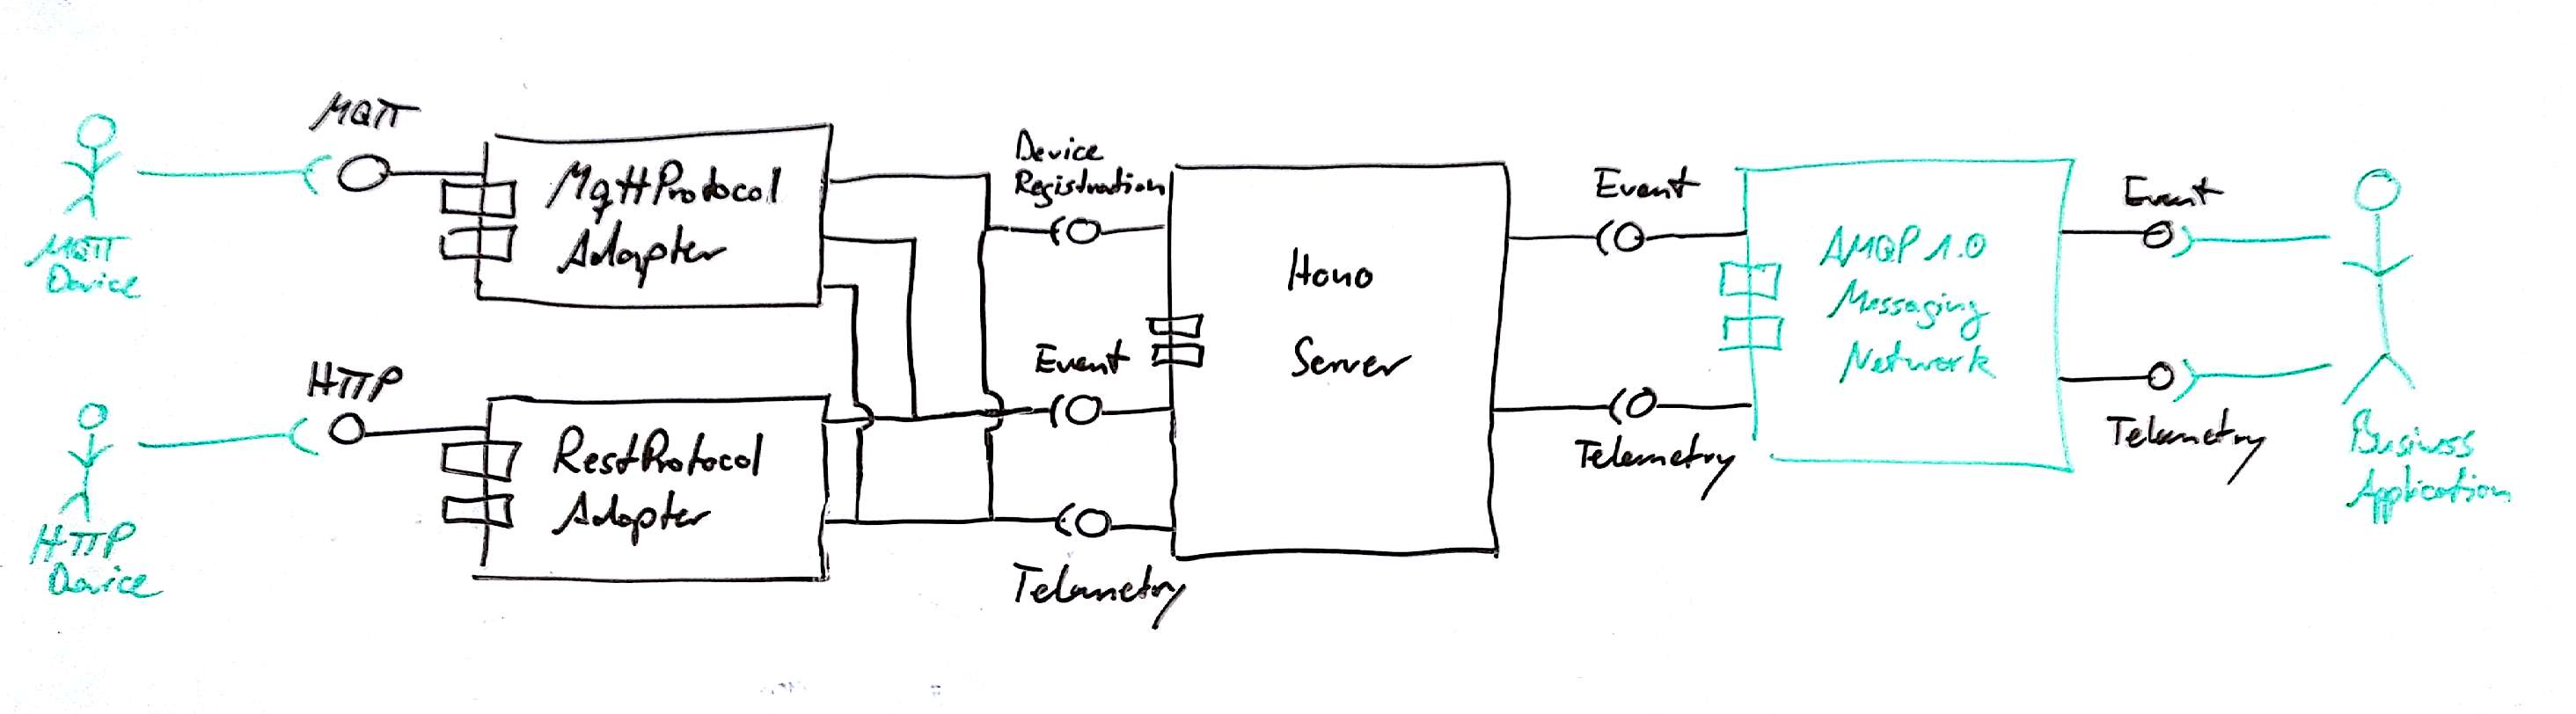 MQTT
MQTT
Device
MqttProtocol
Adapter
HTTP
HTTP
Device
RestProtocol
Adapter
Device
Registration
Event
Telemetry
Hono
Server
Event
Telemetry
AMQP 1.0
Messaging
Network
Event
Telemetry
Business
Application